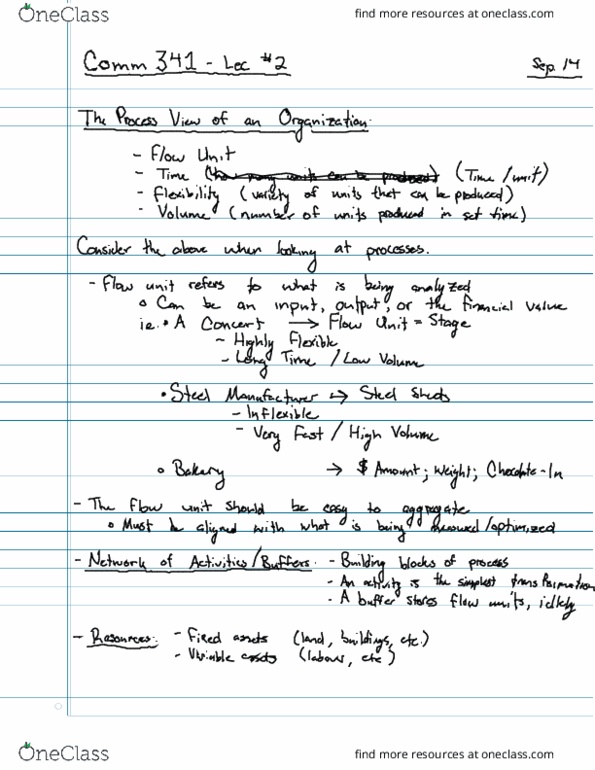 OneClass
find more resources at oneclass.com
Comm 341 - Lec #2
Sep. 14
The Process View of an Organization:
- Flow Unit
- Time (how many units can be produced) (Time/unit)
- Flexibility (variety of units that can be produced)
- Volume (number of units produced in set time)
Consider the above when looking at processes.
- Flow unit refers to what is being analyzed
o Can be an input, output, or the financial value
ie. • A Concert → Flow Unit = Stage
- Highly Flexible
- Long Time / Low Volume
• Steel Manufacturer → Steel Sheets
- Inflexible
- Very Fast / High Volume
o Bakery → $ Amount; Weight; Chocolate-In
- The flow unit should be easy to aggregate
o Must be aligned with what is being measured/optimized
- Network of Activities/Buffers: - Building blocks of process
- An activity is the simplest transformation
- A buffer stores flow units, idlely
- Resources: - Fixed assets (land, buildings, etc.)
- Variable assets (labour, etc)
OneClass
find more resources at oneclass.com